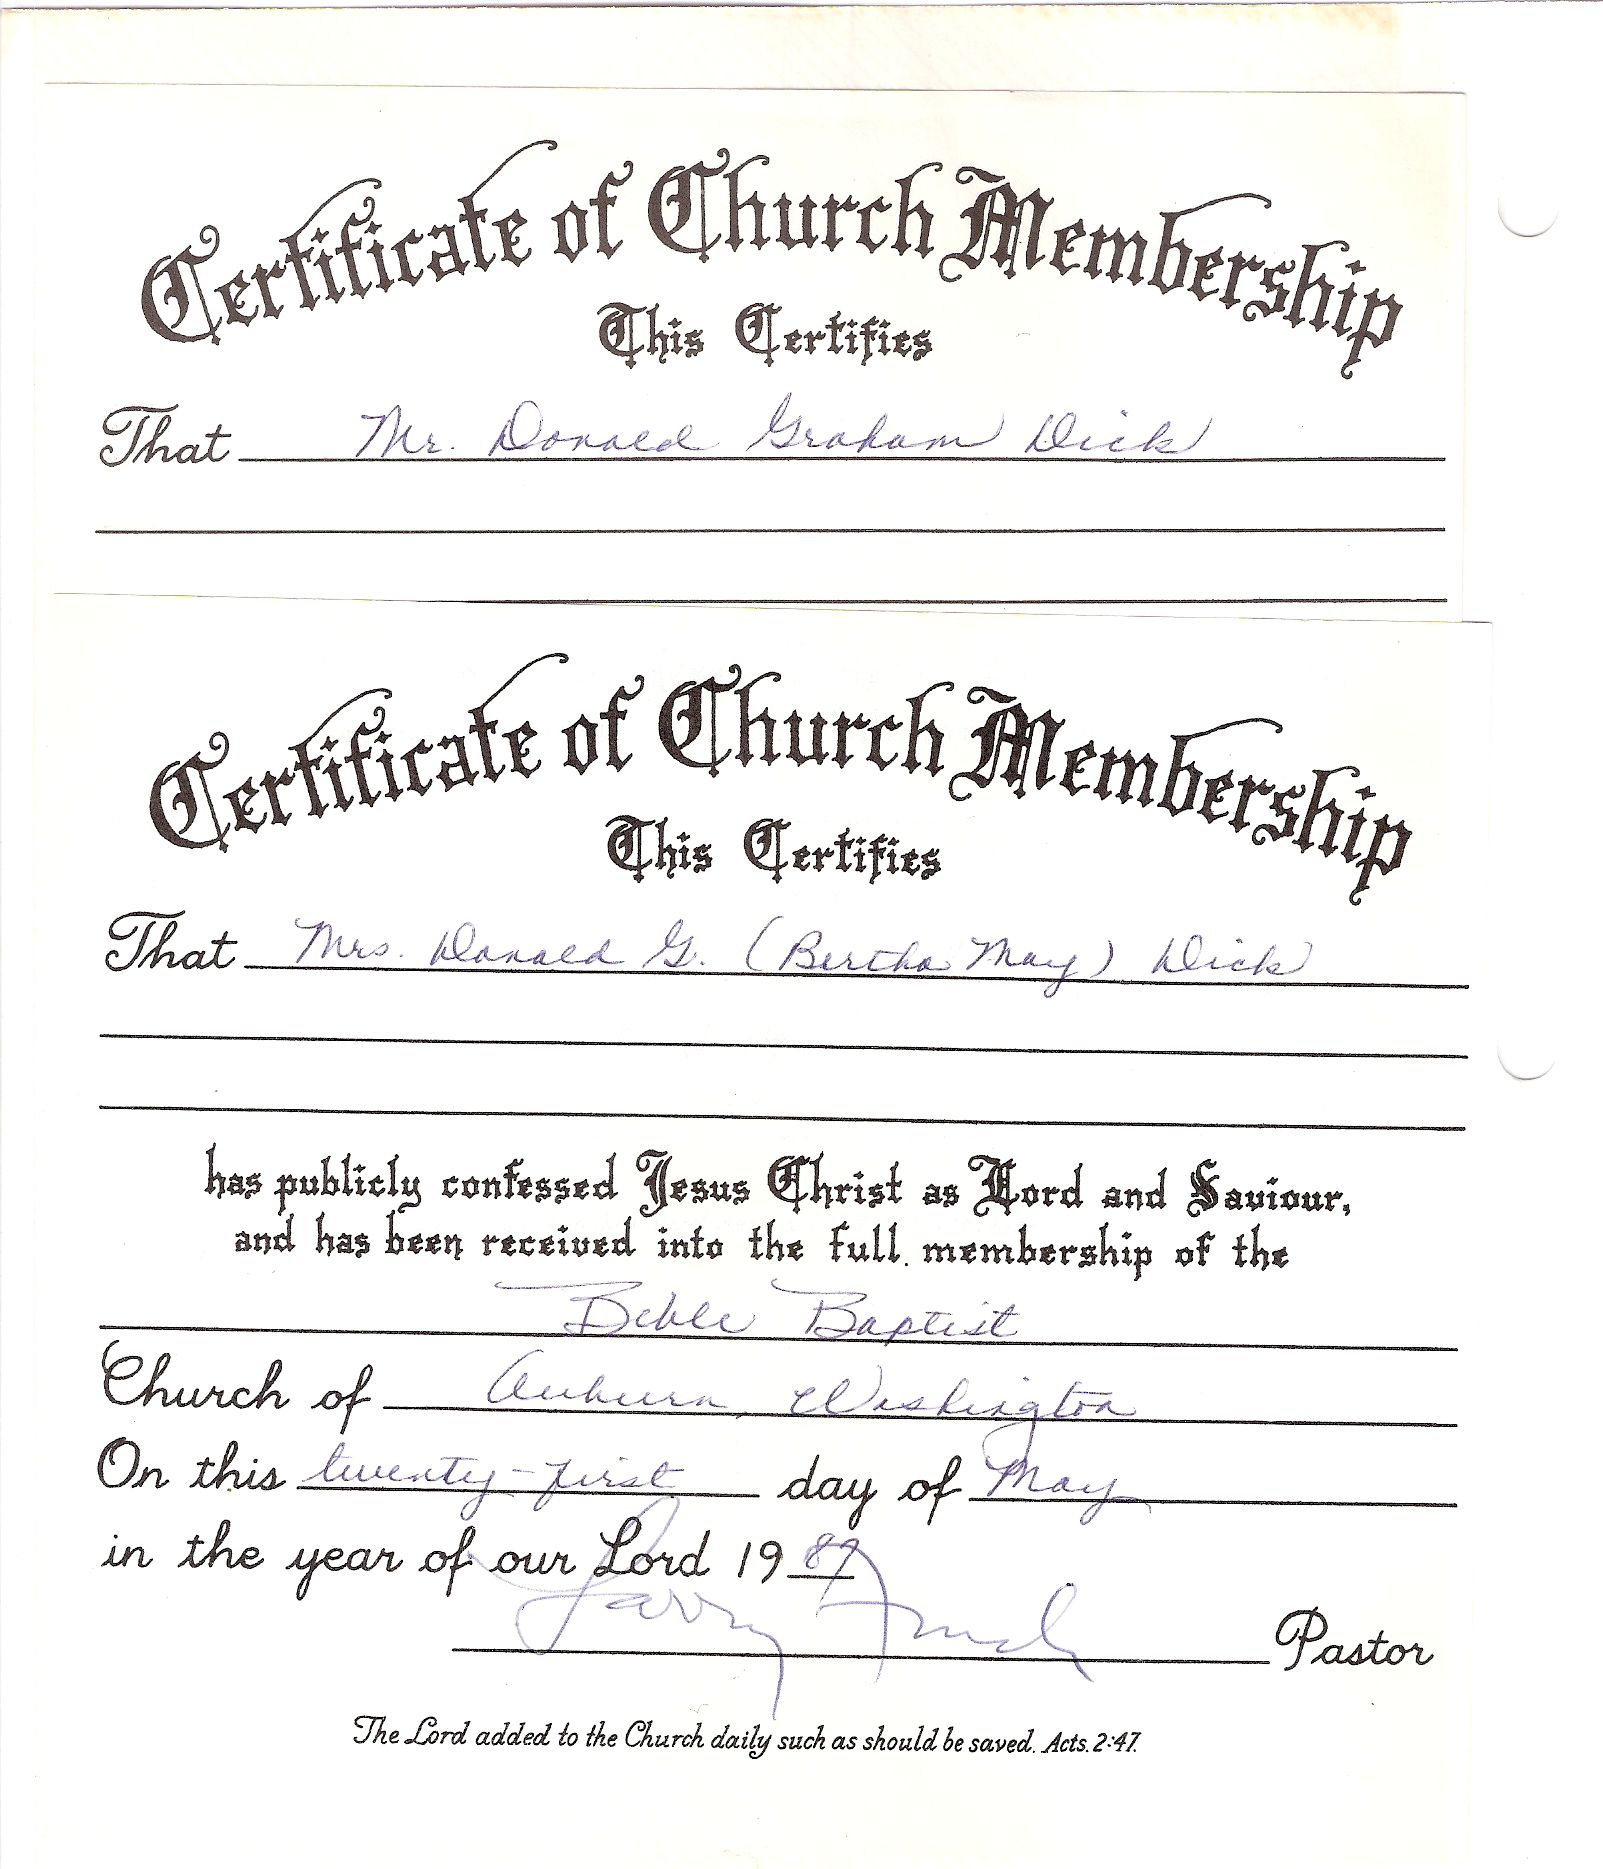 Certificate of Church Membership
This Certifies
That Mr. Donald Graham Dick
Certificate of Church Membership
This Certifies
That Mrs. Donald G. (Bertha May) Dick
has publicly confessed Jesus Christ as Lord and Saviour,
and has been received into the full membership of the
Bible Baptist
Church of Auburn, Washington
On this twenty-first day of May
in the year of our Lord 1989
Larry Pastor
The Lord added to the Church daily such as should be saved. Acts. 2:47.